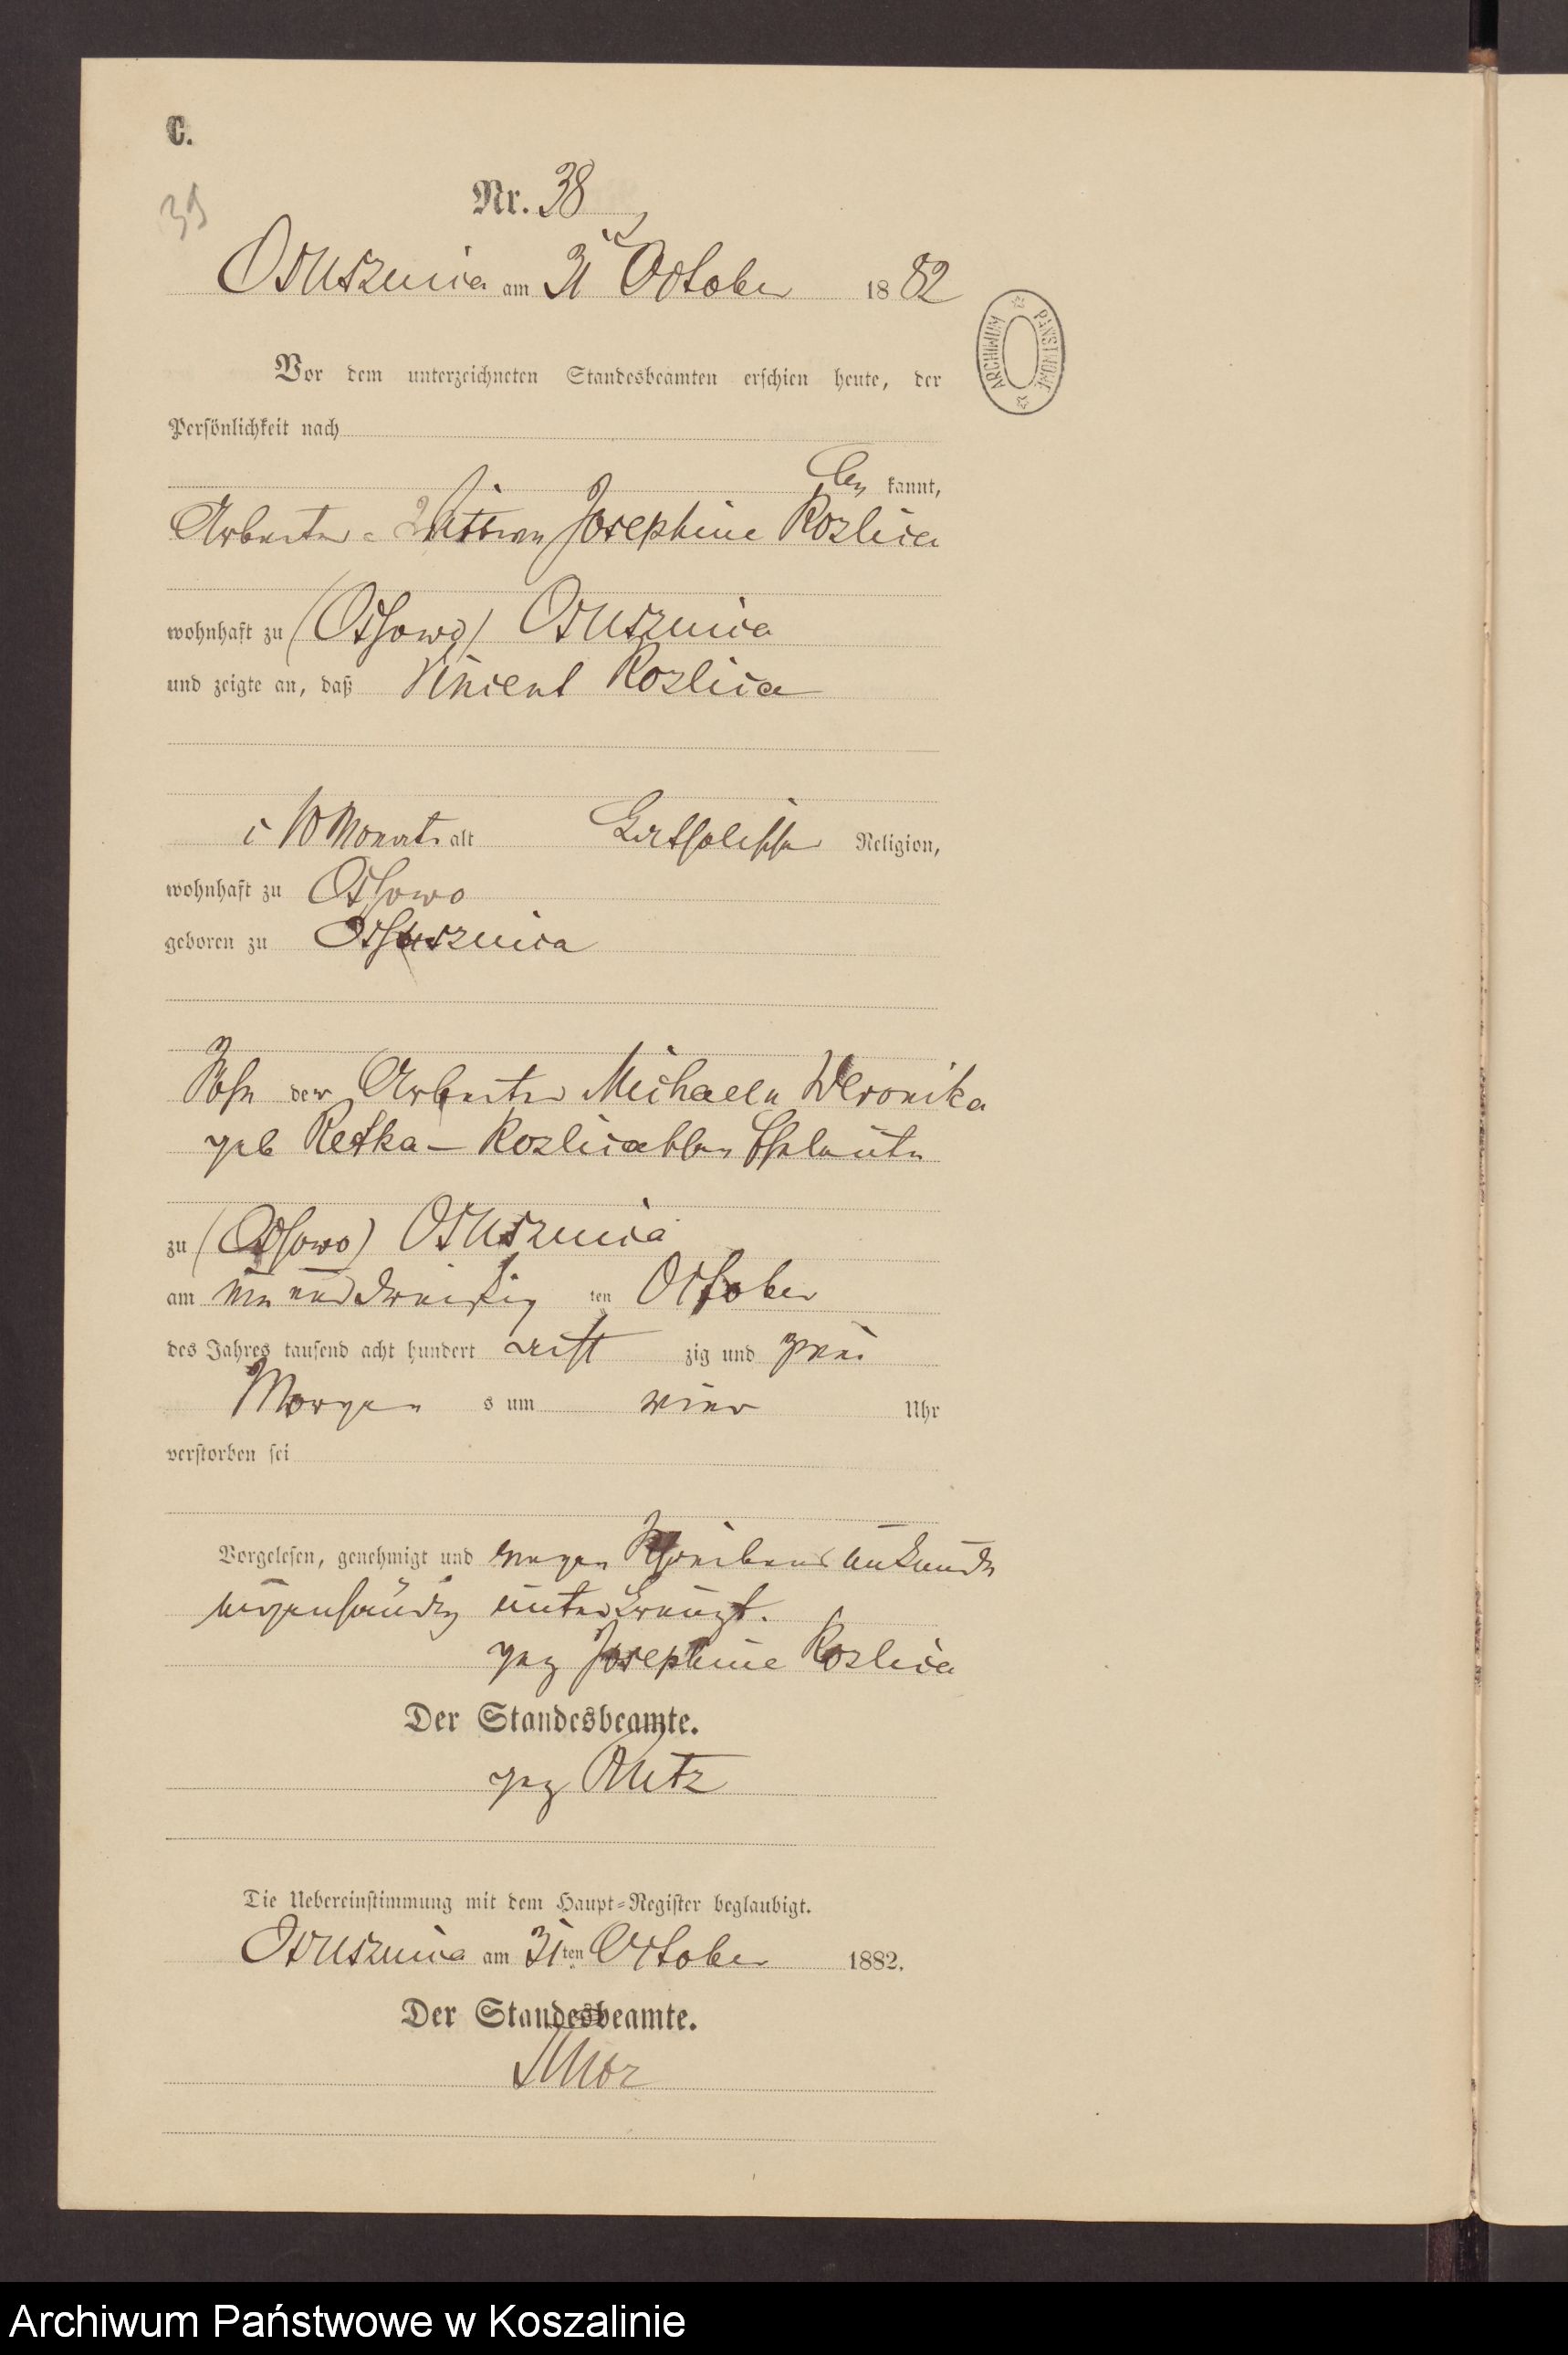 C.
39
Nr. 38
Osusznica am 31 October 18 82
ARCHIWUM PAŃSTWOWE
Vor dem unterzeichneten Standesbeamten erschien heute, der
Persönlichkeit nach
be kannt,
Arbeiter = Wittwe Josephine Rozlica
wohnhaft zu (Ossowo) Osusznica
und zeigte an, daß Vincent Rozlica
10 Monate alt katholischer Religion,
wohnhaft zu Ossowo
geboren zu Ossusznica
Sohn der Arbeiter Michaeln Weronika
geb Retka - Rozlicaschen Eheleute
zu (Ossowo) Osusznica
am ein und dreißig ten October
des Jahres tausend acht hundert acht zig und zwei
Morgen s um vier Uhr
verstorben sei
Vorgelesen, genehmigt und wegen Schreibens unkunde
eigenhändig unterkreuzt.
gez Josephine Rozlica
Der Standesbeamte.
gez
Die Uebereinstimmung mit dem Haupt-Register beglaubigt.
Osusznica am 31ten October 1882.
Der Standesbeamte.
Archiwum Państwowe w Koszalinie